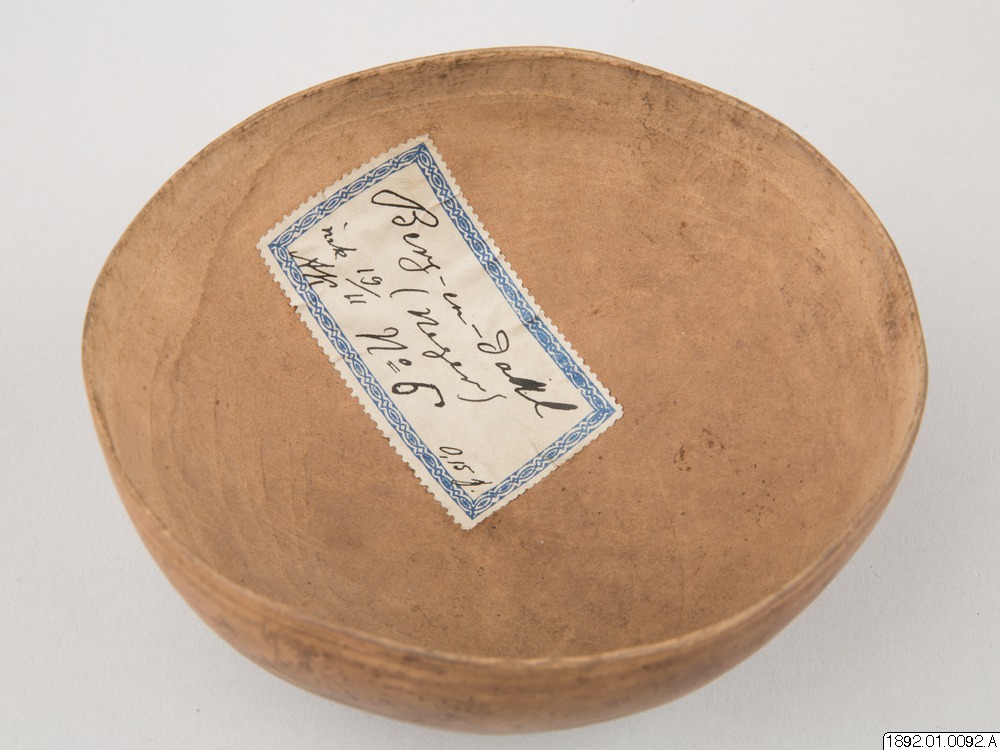 Berg-en-Dahl
(Neger)
ink 19/11 No 6
0,15 f.
1892.01.0092.A